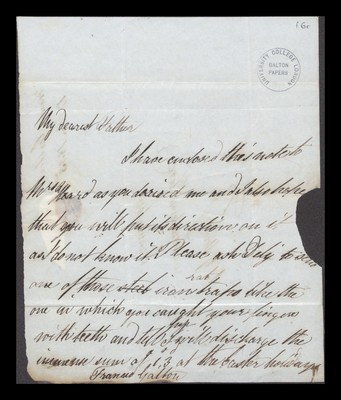 UNIVERSITY COLLEGE LONDON
GALTON
PAPERS
My dearest Father
I have enclosed this note to
Mrs Ward as you desired me and I also hope
that you will put its direction on it
as I do not know it. Please ask Dely to send
rat
one of those steel iron traps like the
one in which you caught your fingers
with teeth and tell
I will discharge the
immense sum of
at the Easter holidays
Francis Galton